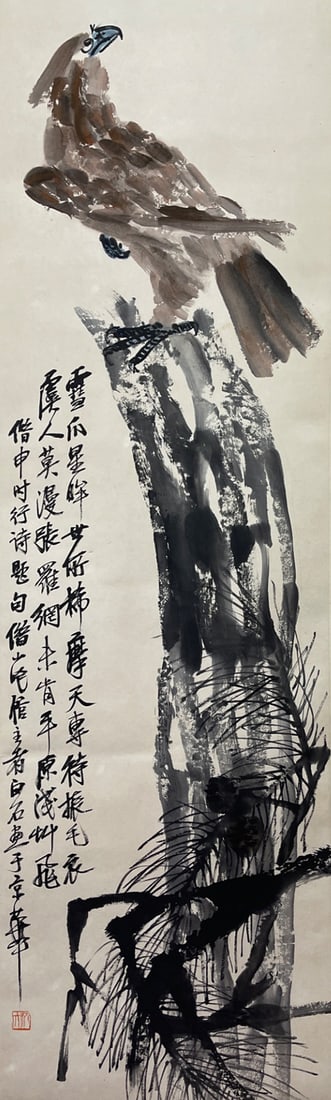 雪爪星眸世所稀摩天專待振毛衣
虞人莫漫張羅網未肯平原淺草飛
借申时行诗題句借山吟館主者白石画于京華